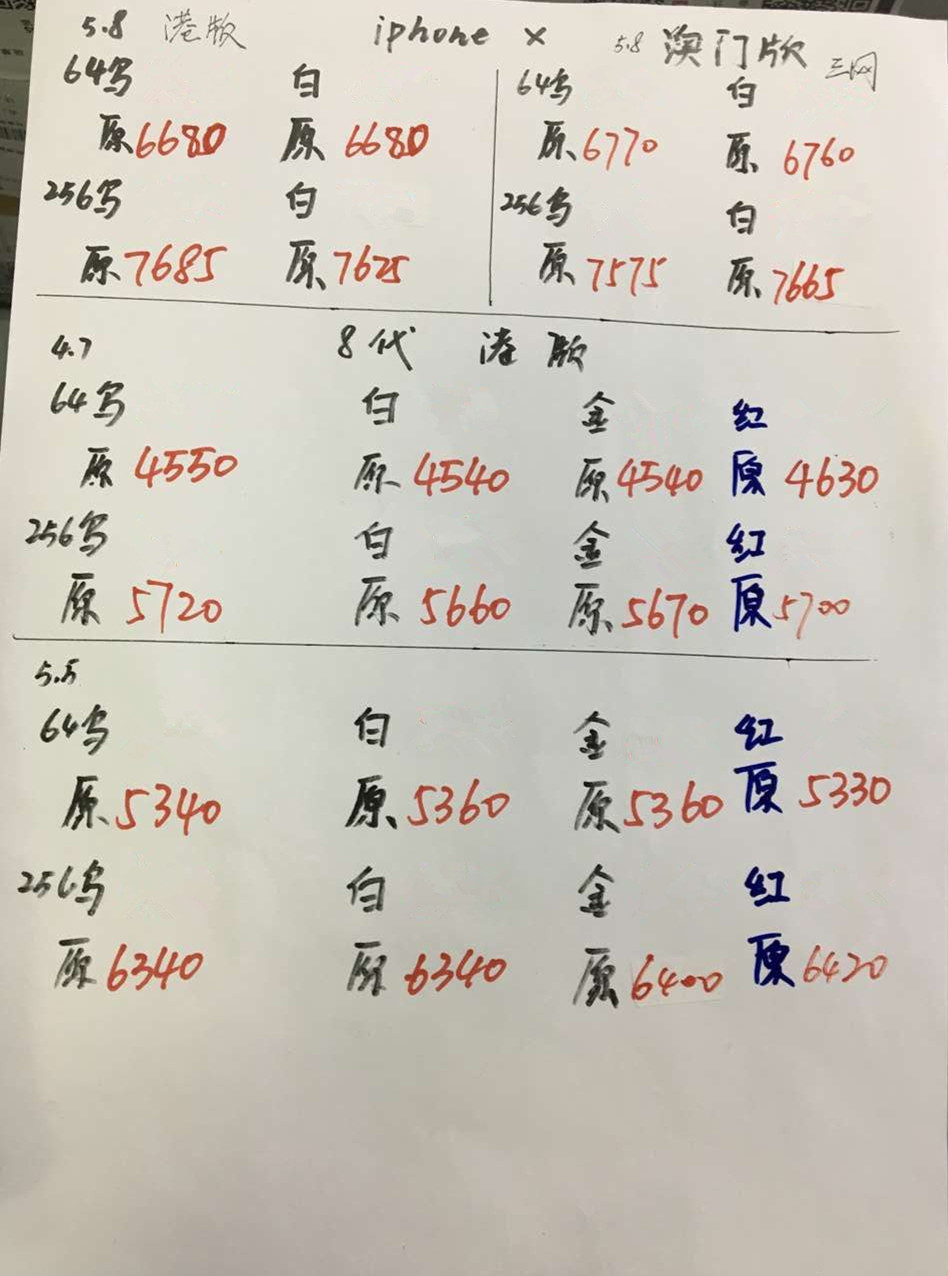 5.8 港版 iphone X 5.8 澳门版 三网
64乌 白 64乌 白
原6680 原6680 原6770 原6760
256乌 白 256乌 白
原7685 原7625 原7575 原7665
4.7 8代 港版
64乌 白 金 红
原4550 原4540 原4540 原4630
256乌 白 金 红
原5720 原5660 原5670 原5700
5.5
64乌 白 金 红
原5340 原5360 原5360 原5330
256乌 白 金 红
原6340 原6340 原6400 原6420